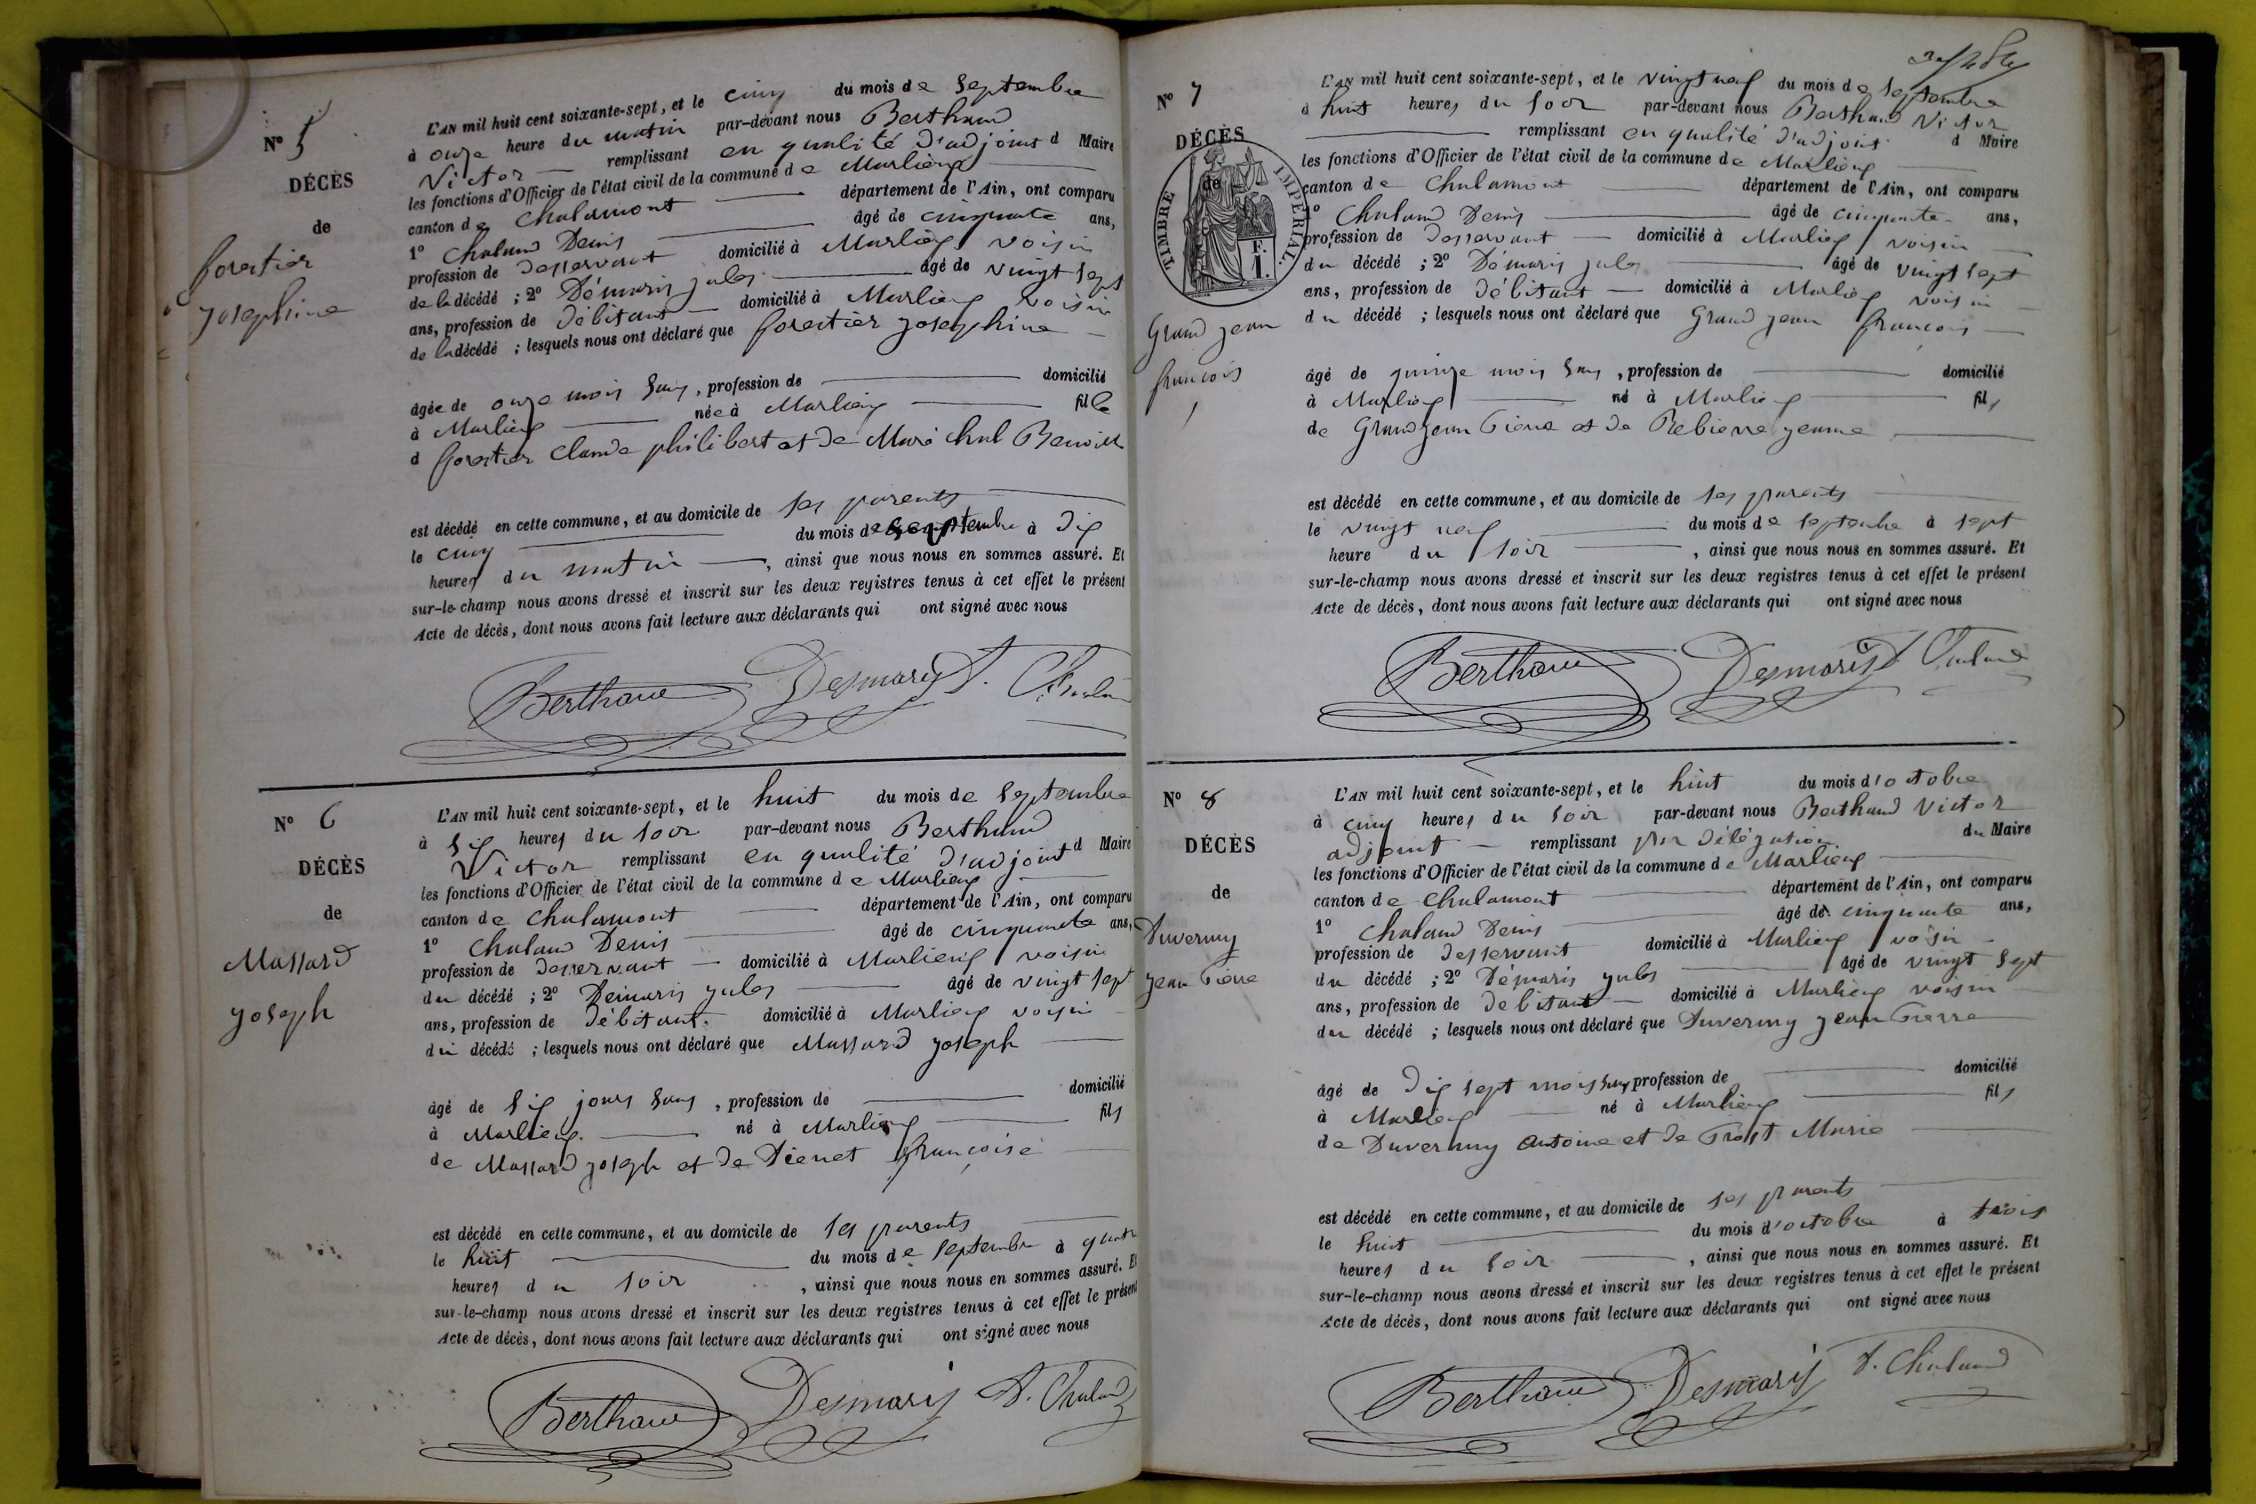 N° 5
DÉCÈS
de
forestier
josephine
L'AN mil huit cent soixante-sept, et le cinq du mois de Septembre
à onze heure du matin par-devant nous Berthaud
Victor remplissant en qualité d'adjoint d Maire
les fonctions d'Officier de l'état civil de la commune de Marlieux
canton de Chalamont département de l'Ain, ont comparu
1° Chaland Denis âgé de cinquante ans,
profession de desservant domicilié à Marlieux voisin
de la décédé ; 2° Démaris jules âgé de vingt sept
ans, profession de débitant domicilié à Marlieux voisin
de la décédé ; lesquels nous ont déclaré que forestier josephine
âgée de onze mois Sans, profession de domicilié
à Marlieux née à Marlieux fille
d forestier Claude philibert et de Maréchal Benoite
est décédé en cette commune, et au domicile de ses parents
le cinq du mois de Septembre à dix
heures du matin, ainsi que nous nous en sommes assuré. Et
sur-le-champ nous avons dressé et inscrit sur les deux registres tenus à cet effet le présent
Acte de décès, dont nous avons fait lecture aux déclarants qui ont signé avec nous
Berthaud Desmaris D. Chaland
N° 6
DÉCÈS
de
Massard
joseph
L'AN mil huit cent soixante-sept, et le huit du mois de Septembre
à Six heures du soir par-devant nous Berthaud
Victor remplissant en qualité d'adjoint d Maire
les fonctions d'Officier de l'état civil de la commune de Marlieux
canton de Chalamont département de l'Ain, ont comparu
1° Chaland Denis âgé de cinquante ans,
profession de desservant domicilié à Marlieux voisin
du décédé ; 2° Demaris jules âgé de vingt sept
ans, profession de débitant. domicilié à Marlieux voisin
du décédé ; lesquels nous ont déclaré que Massard joseph
âgé de Six jours Sans, profession de domicilié
à Marlieux né à Marlieux fils
de Massard joseph et de françoise
est décédé en cette commune, et au domicile de ses parents
le huit du mois de septembre à quatre
heures du soir, ainsi que nous nous en sommes assuré. Et
sur-le-champ nous avons dressé et inscrit sur les deux registres tenus à cet effet le présent
Acte de décès, dont nous avons fait lecture aux déclarants qui ont signé avec nous
Berthaud Desmaris D. Chaland
N° 7
DÉCÈS
de
TIMBRE IMPÉRIAL
F. I.
Grand jean
francois
L'AN mil huit cent soixante-sept, et le vingt neuf du mois de septembre
à huit heures du soir par-devant nous Berthaud Victor
remplissant en qualité d'adjoint d Maire
les fonctions d'Officier de l'état civil de la commune de Marlieux
canton de Chalamont département de l'Ain, ont comparu
1° Chaland Denis âgé de cinquante ans,
profession de desservant domicilié à Marlieux voisin
du décédé ; 2° Démaris jules âgé de vingt sept
ans, profession de débitant domicilié à Marlieux voisin
du décédé ; lesquels nous ont déclaré que Grand jean francois
âgé de quinze mois Sans, profession de domicilié
à Marlieux né à Marlieux fils
de Grand jean Pierre et de Rebierre jeanne
est décédé en cette commune, et au domicile de ses parents
le vingt neuf du mois de septembre à sept
heure du soir, ainsi que nous nous en sommes assuré. Et
sur-le-champ nous avons dressé et inscrit sur les deux registres tenus à cet effet le présent
Acte de décès, dont nous avons fait lecture aux déclarants qui ont signé avec nous
Berthaud Desmaris D Chaland
N° 8
DÉCÈS
de
Duvernay
jean Pierre
L'AN mil huit cent soixante-sept, et le huit du mois d'octobre
à cinq heures du soir par-devant nous Berthaud Victor
adjoint remplissant par délégation du Maire
les fonctions d'Officier de l'état civil de la commune de Marlieux
canton de Chalamont département de l'Ain, ont comparu
1° Chaland Denis âgé de cinquante ans,
profession de desservant domicilié à Marlieux voisin
du décédé ; 2° Démaris jules âgé de vingt sept
ans, profession de débitant domicilié à Marlieux voisin
du décédé ; lesquels nous ont déclaré que Duvernay jean Pierre
âgé de dix sept mois Sans profession de domicilié
à Marlieux né à Marlieux fils
de Duvernay antoine et de Prost Marie
est décédé en cette commune, et au domicile de ses parents
le huit du mois d'octobre à trois
heures du soir, ainsi que nous nous en sommes assuré. Et
sur-le-champ nous avons dressé et inscrit sur les deux registres tenus à cet effet le présent
Acte de décès, dont nous avons fait lecture aux déclarants qui ont signé avec nous
Berthaud Desmaris D. Chaland